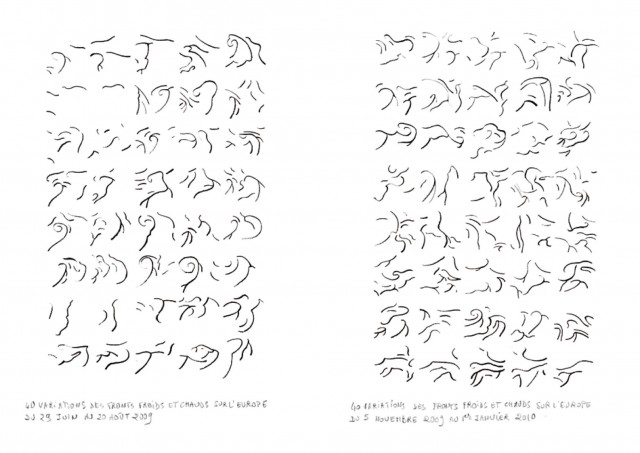 40 VARIATIONS DES FRONTS FROIDS ET CHAUDS SUR L'EUROPE
DU 23 JUIN AU 20 AOÛT 2009
40 VARIATIONS DES FRONTS FROIDS ET CHAUDS SUR L'EUROPE
DU 5 NOVEMBRE 2009 AU 1er JANVIER 2010